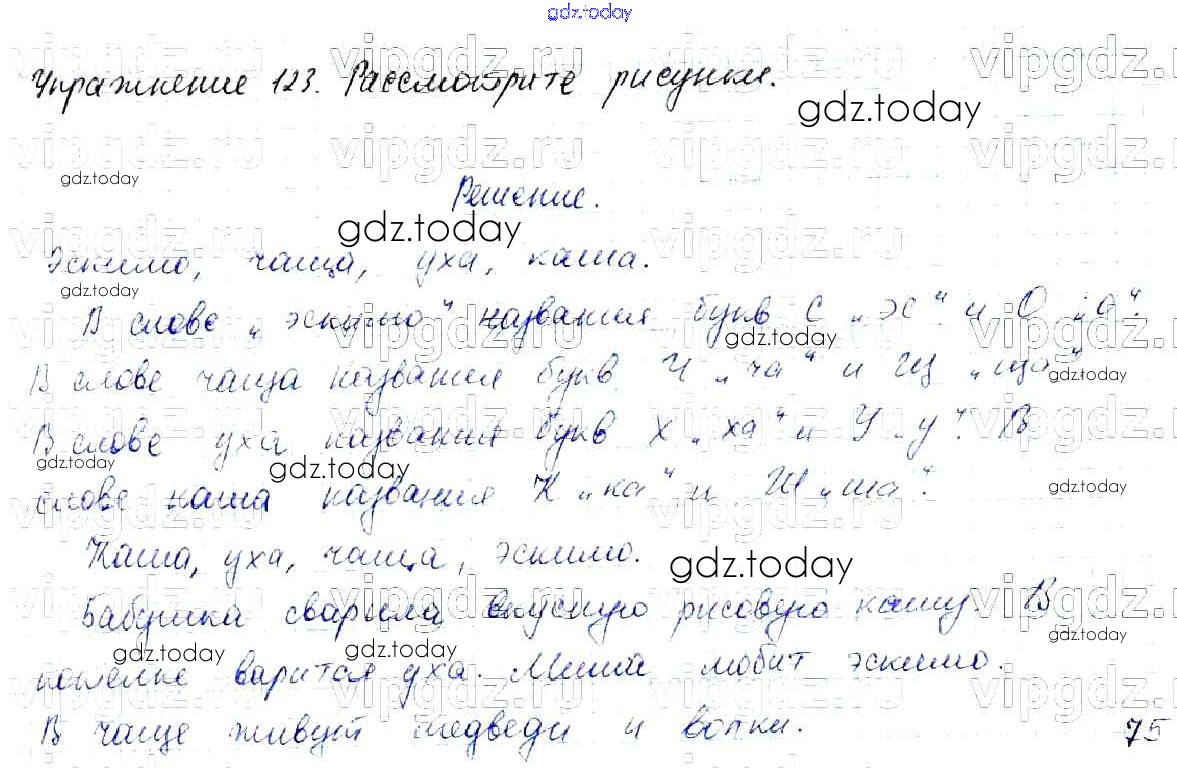 gdz.today
Упражнение 123. Рассмотрите рисунки.
Решение.
Эскимо, чаща, уха, каша.
В слове „эскимо“ названия букв С „эс“ и О „о“.
В слове чаща названия букв Ч „ча“ и Щ „ща“
В слове уха названия букв Х „ха“ и У „у“. В
слове каша названия К „ка“ и Ш „ша“.
Каша, уха, чаща, эскимо.
Бабушка сварила вкусную рисовую кашу. В
котелке варится уха. Миша любит эскимо.
В чаще живут медведи и волки.
75